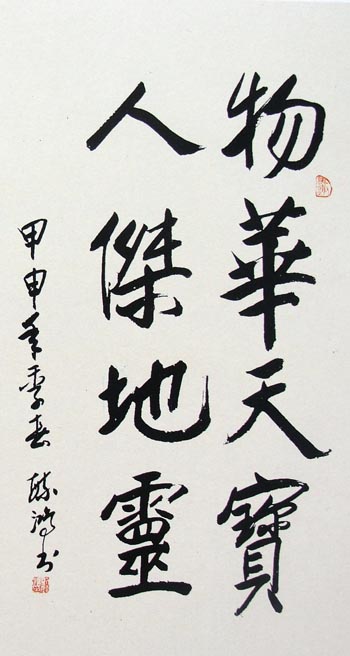 物華天寶
人傑地靈
甲申年季春 鴻书